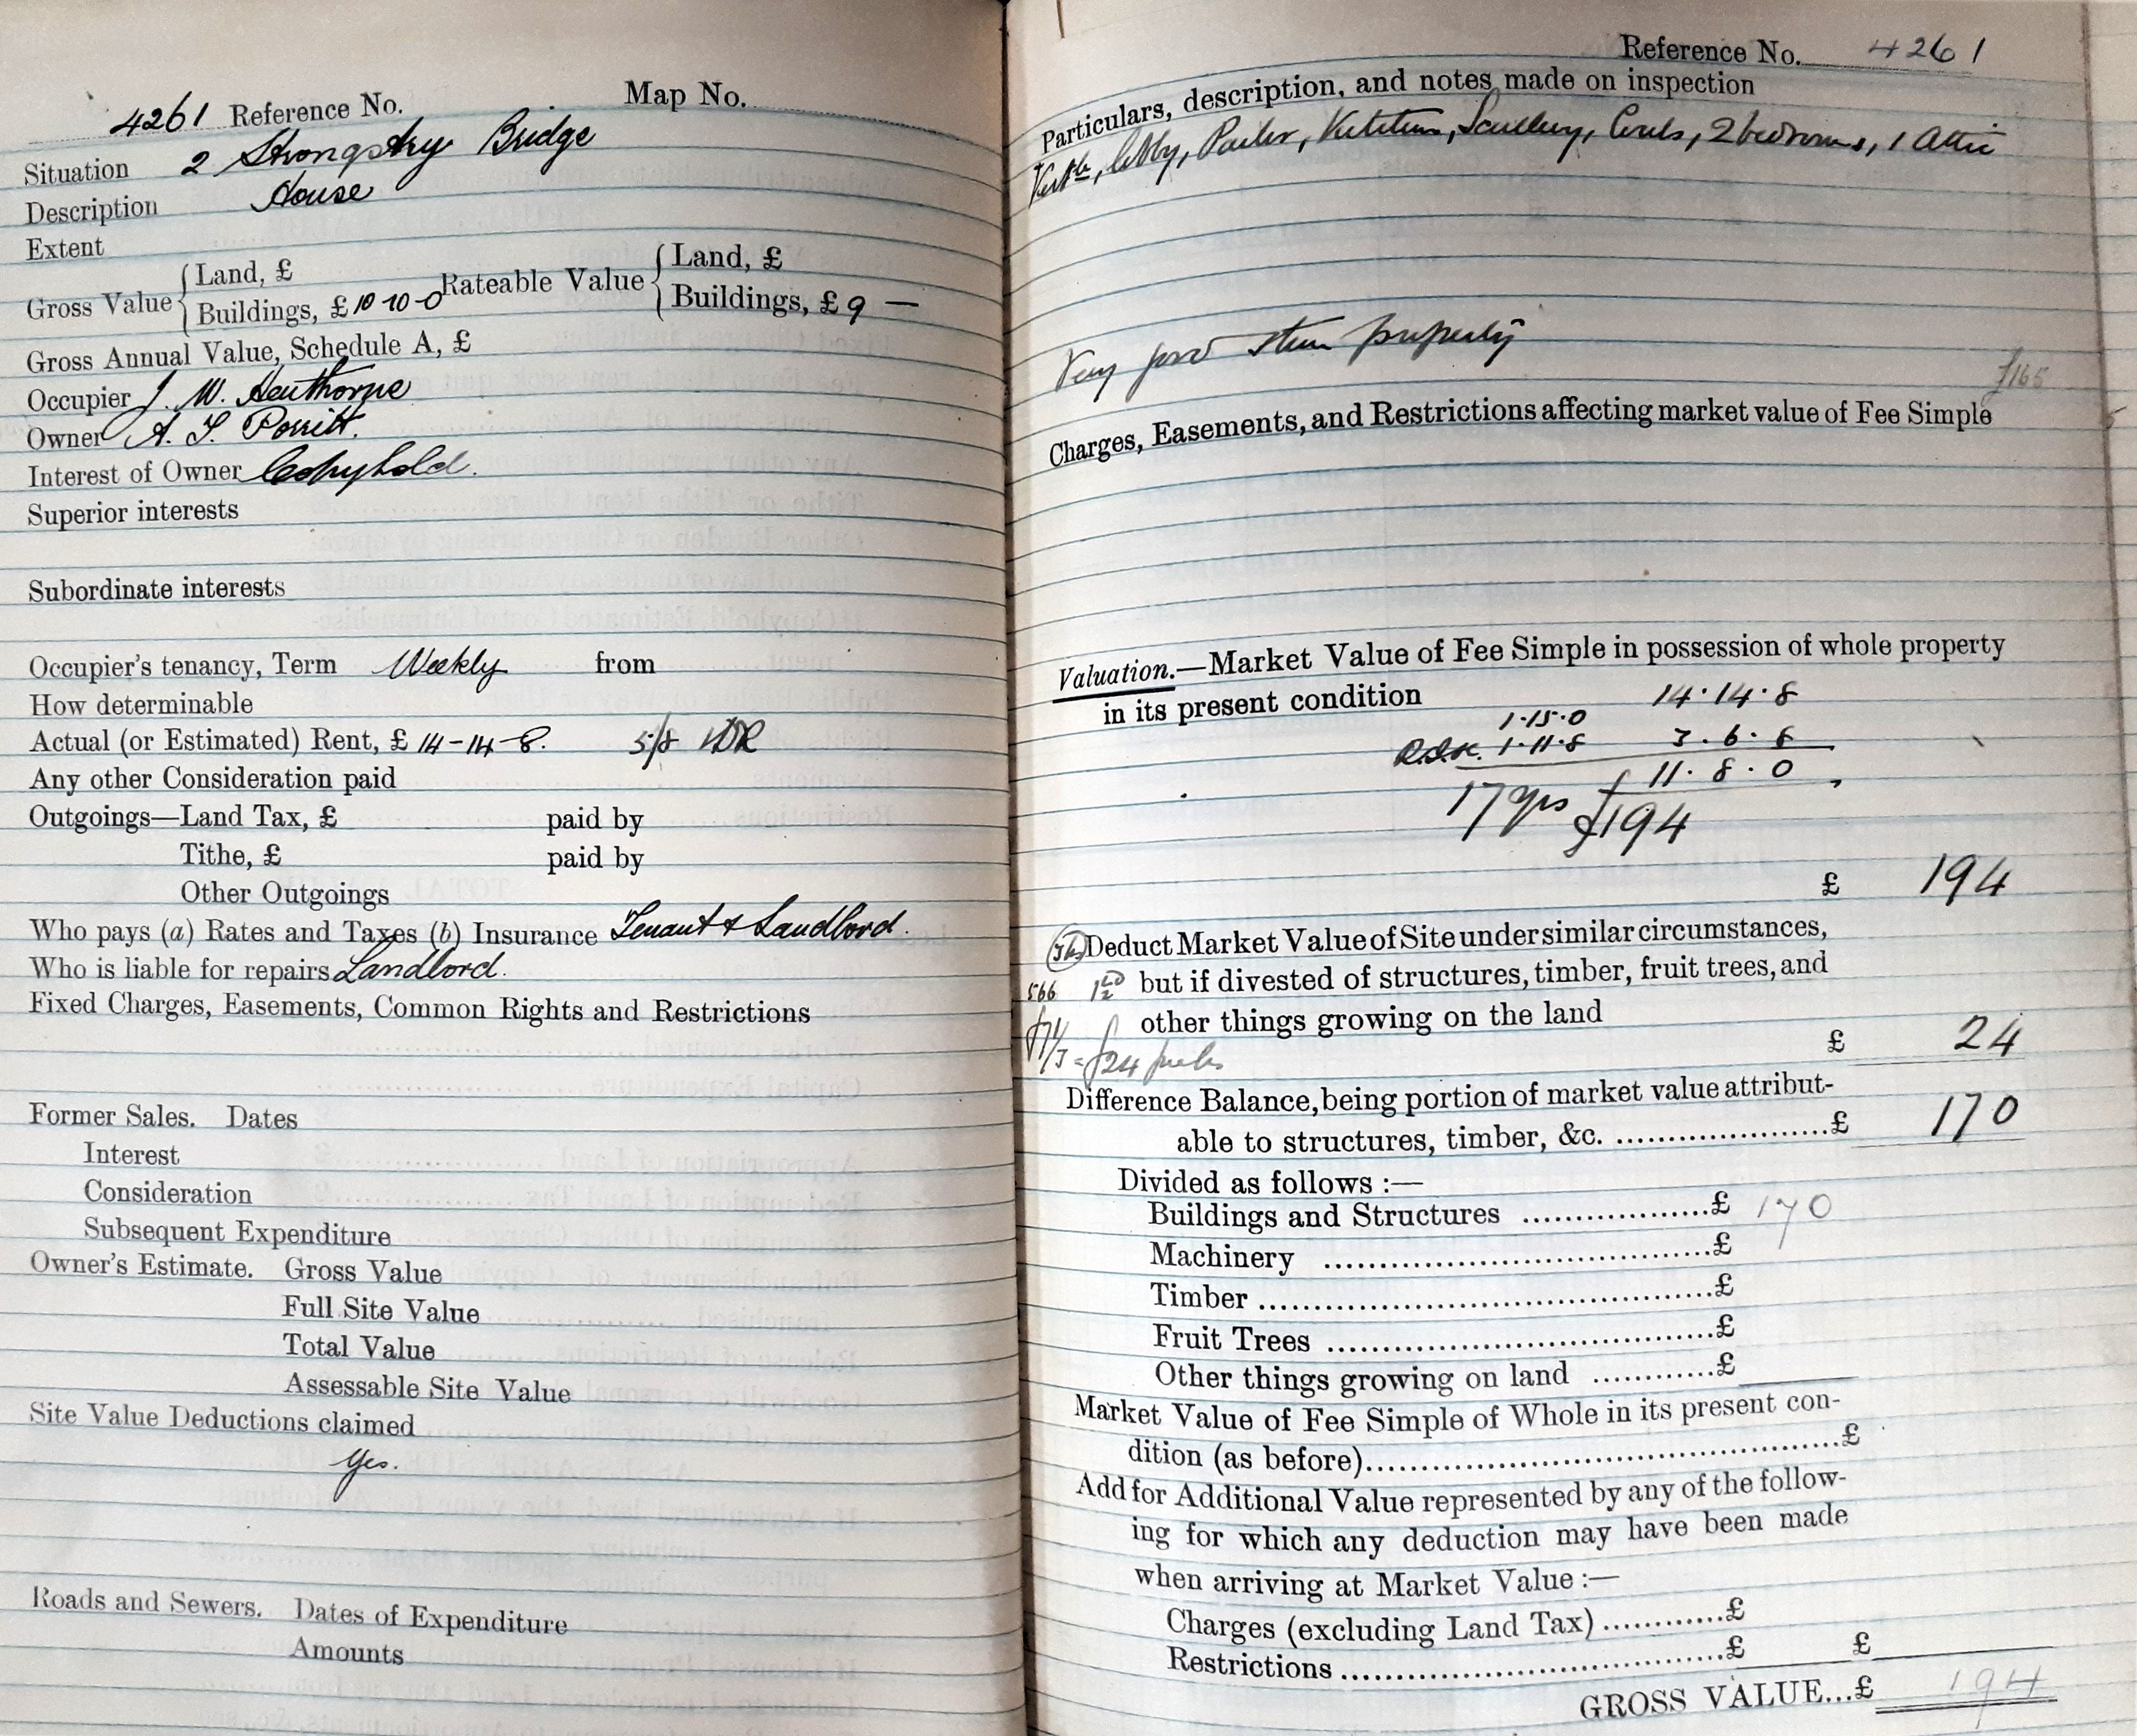 4261 Reference No. Map No.
Situation 2 Strongstry Bridge
Description House
Extent
Gross Value { Land, £
Buildings, £ 10-10-0 Rateable Value { Land, £
Buildings, £ 9 —
Gross Annual Value, Schedule A, £
Occupier J. W. Henthorpe
Owner A. T. Porritt.
Interest of Owner Copyhold.
Superior interests
Subordinate interests
Occupier's tenancy, Term Weekly from
How determinable
Actual (or Estimated) Rent, £ 14-14-8. 5/8
Any other Consideration paid
Outgoings—Land Tax, £ paid by
Tithe, £ paid by
Other Outgoings
Who pays (a) Rates and Taxes (b) Insurance Tenant & Landlord.
Who is liable for repairs Landlord.
Fixed Charges, Easements, Common Rights and Restrictions
Former Sales. Dates
Interest
Consideration
Subsequent Expenditure
Owner's Estimate. Gross Value
Full Site Value
Total Value
Assessable Site Value
Site Value Deductions claimed
Yes.
Roads and Sewers. Dates of Expenditure
Amounts
Reference No. 4261
Particulars, description, and notes made on inspection
Vestle, lobby, Parlor, Kitchen, Scullery, Coals, 2 bedrooms, 1 Attic
Very good stone property
£165
Charges, Easements, and Restrictions affecting market value of Fee Simple
Valuation.—Market Value of Fee Simple in possession of whole property
in its present condition 14.14.8
1.15.0
1.11.8 3.6.8
£ 11.8.0
17 yrs £194
£ 194
Deduct Market Value of Site under similar circumstances,
566 but if divested of structures, timber, fruit trees, and
other things growing on the land
= £24
£ 24
Difference Balance, being portion of market value attribut-
able to structures, timber, &c. ......................£ 170
Divided as follows :—
Buildings and Structures ...................£ 170
Machinery ........................................£
Timber ...............................................£
Fruit Trees ........................................£
Other things growing on land ............£
Market Value of Fee Simple of Whole in its present con-
dition (as before)................................................£
Add for Additional Value represented by any of the follow-
ing for which any deduction may have been made
when arriving at Market Value :—
Charges (excluding Land Tax) ............£
Restrictions .......................................£ £
GROSS VALUE...£ 194